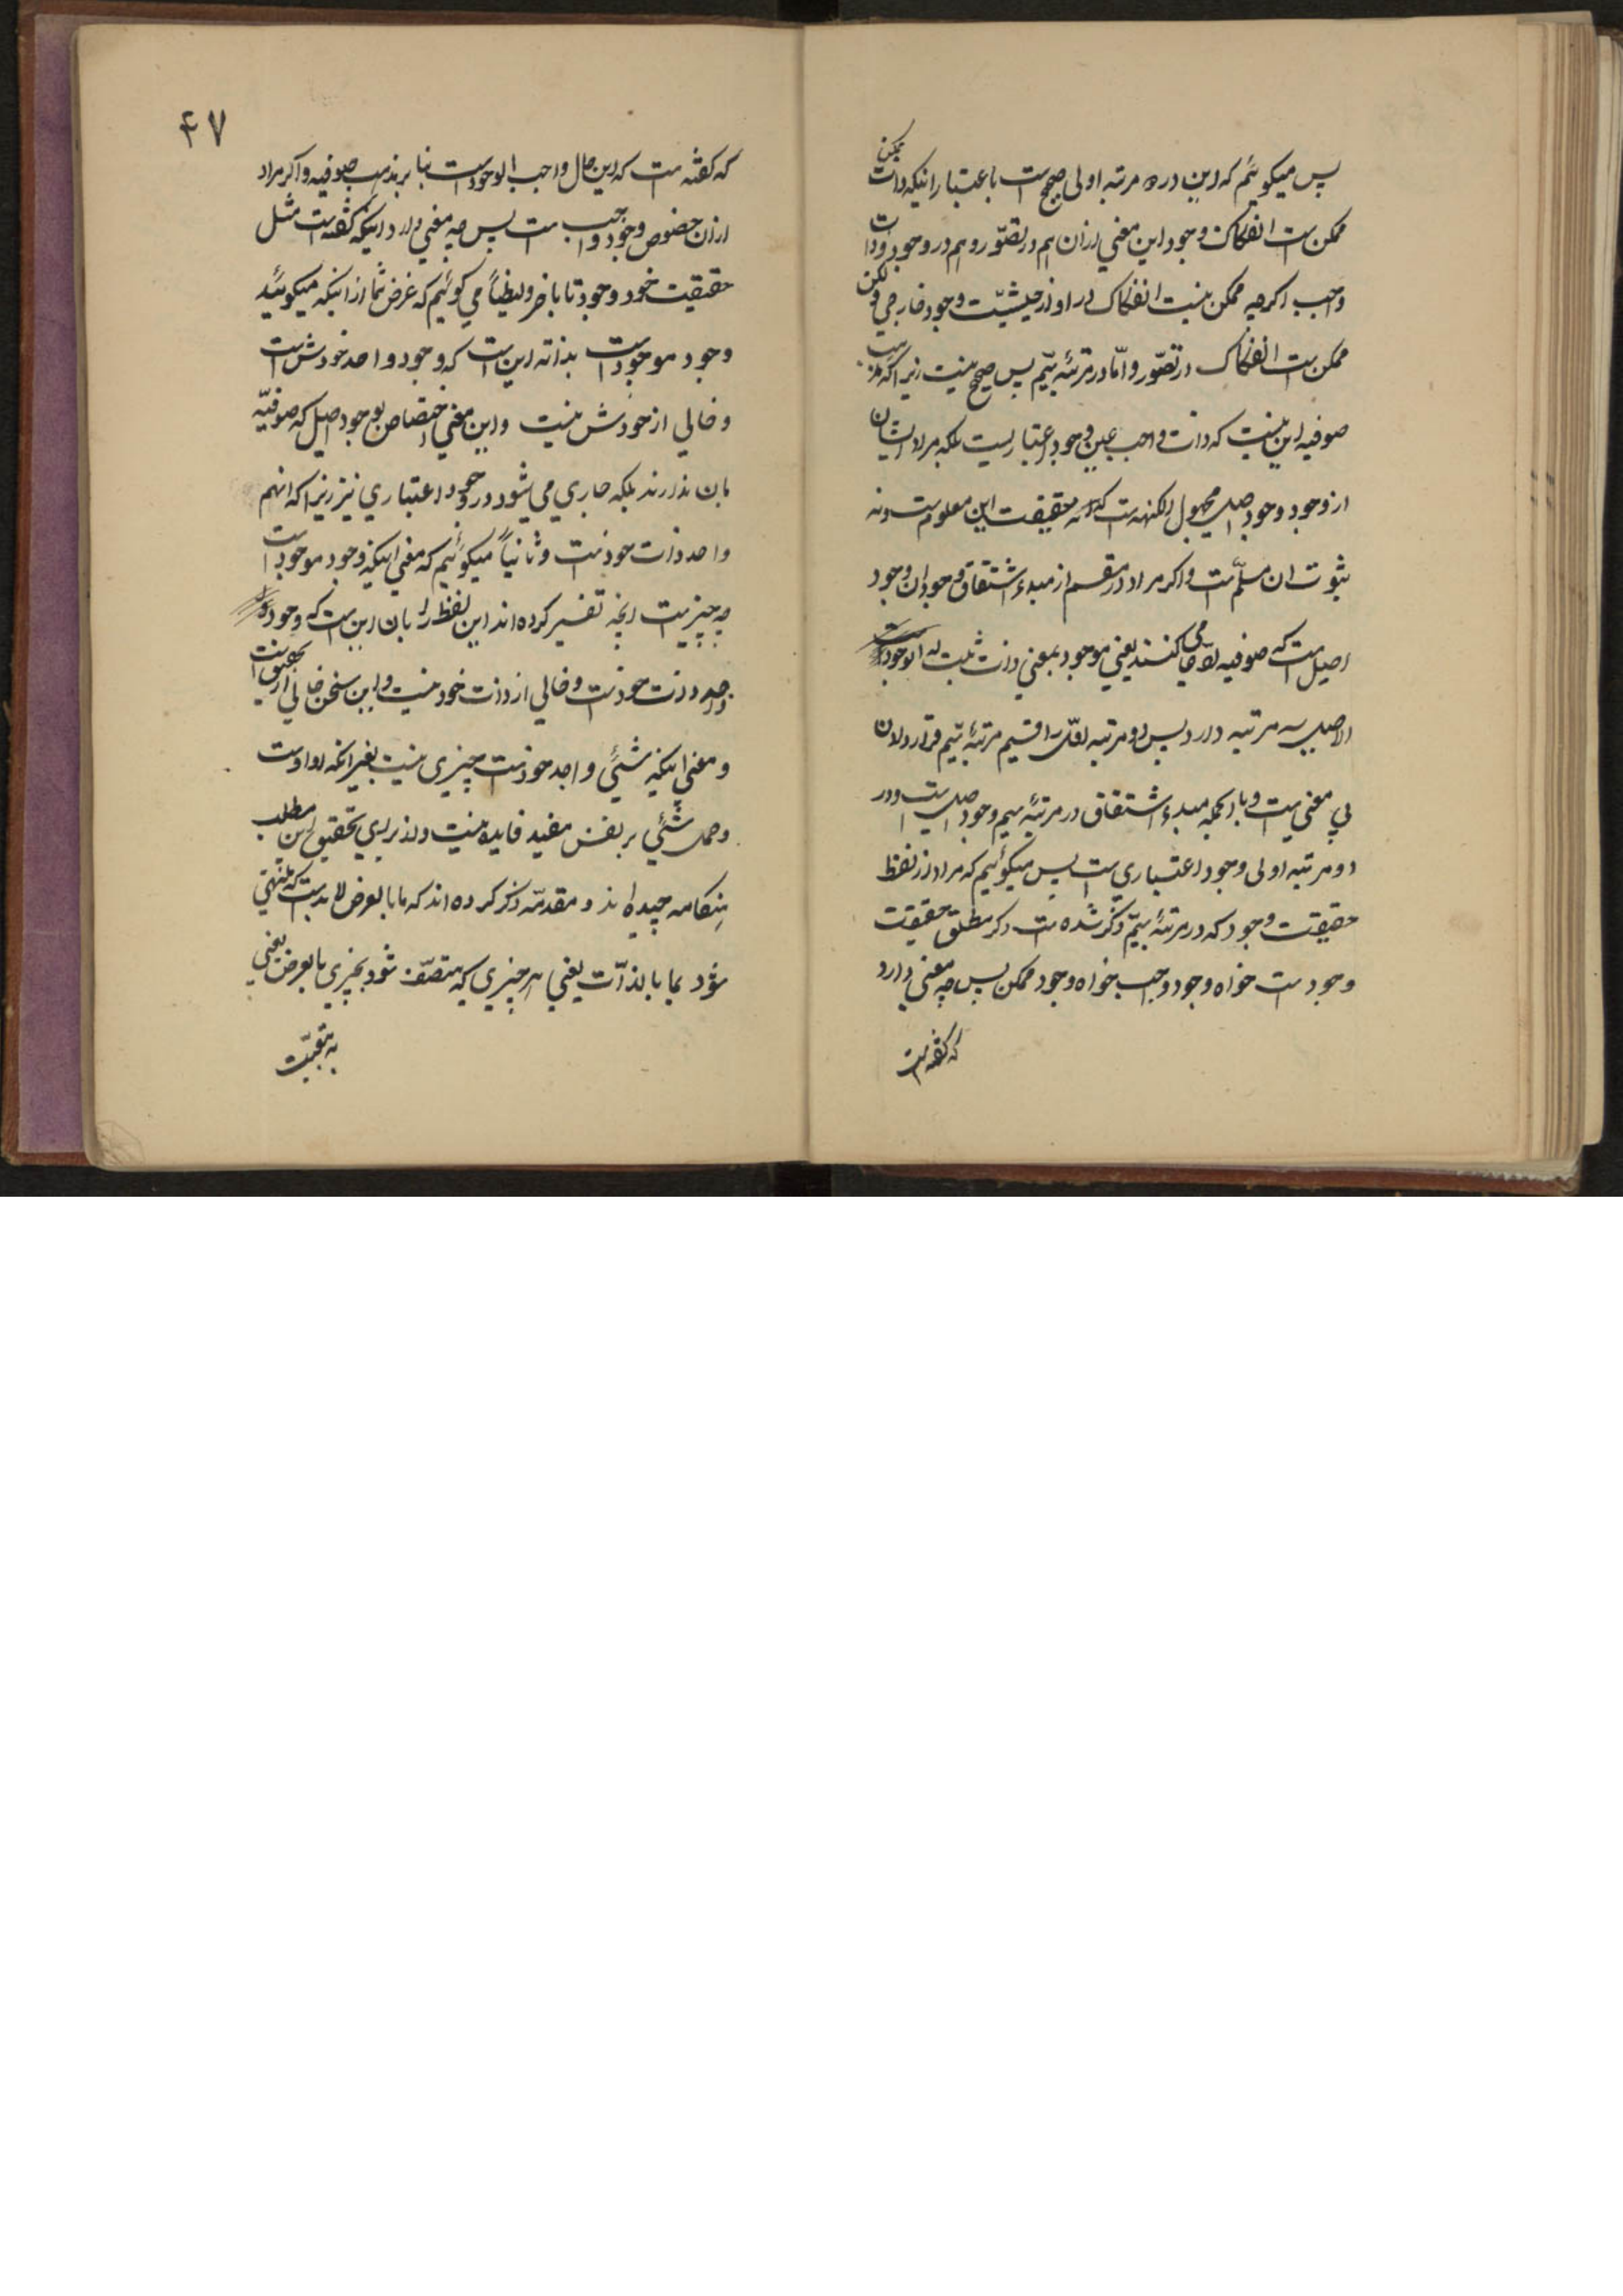 پس میکوئیم که این در دو مرتبه اولی صحیح است باعتبار اینکه ذات ممکن
ممکن است انفکاک وجود این معنی ازان هم در تصور و هم در وجود و ذات
واجب اکرچه ممکن نیست انفکاک در او از حیثیت وجود خارجی ولکن
ممکن است انفکاک در تصور و اما در مرتبهٔ سیم پس صحیح نیست زیرا که
صوفیه این نیست که ذات واجب عین وجود اعتباریست بلکه مراد ایشان
از وجود وجود اصیل مجهول الکنهه است که نه حقیقت این معلوم است و نه
ثبوت ان مسلم است و اکر مراد در مقسم از مبدء اشتقاق وجود ان وجود
اصیل است که صوفیه ادعا می کنند یعنی موجود بمعنی ذات ثبت له الوجود
الاصیل سه مرتبه دارد پس دو مرتبه اول را قسیم مرتبهٔ سیم قرار دادن
بی معنی است و بالجمله مبدء اشتقاق در مرتبهٔ سیم وجود اصیل است و در
دو مرتبه اولی وجود اعتباری است پس میکوئیم که مراد از لفظ
حقیقت وجود که در مرتبهٔ سیم ذکر شده است اکر مطلق حقیقت
وجود است خواه وجود واجب خواه وجود ممکن پس چه معنی دارد
که کفته است
۴۷
که کفته است که این حال واجب الوجود است بنا بر مذهب صوفیه و اکر مراد
ازان خصوص وجود واجب است پس چه معنی دارد اینکه کفته است مثل
حقیقت خود وجود تا باخر و ایضاً می کوئیم که غرض شما از اینکه میکوئید
وجود موجود است بذاته این است که وجود واجد خودش است
و خالی از خودش نیست و این معنی اختصاص بوجود اصیل که صوفیه
بان ندارند بلکه جاری می شود در وجود اعتباری نیز زیرا که انهم
واجد ذات خود است و ثانیاً میکوئیم که معنی اینکه وجود موجود است
چه چیز است انچه تفسیر کرده اند این لفظ را بان این است که وجود
واجد ذات خود است و خالی از ذات خود نیست و این سخن خالی از تحقیق است
و معنی اینکه شئی واجد خود است چیزی نیست بغیر انکه او اوست
و حمل شئی بر نفس مفید فایده نیست و از برای تحقیق این مطلب
هنکامه چیده اند و مقدمه ذکر کرده اند که ما بالعرض لابد است که منتهی
شود بما بالذات یعنی هر چیزی که متصف شود بچیزی بالعرض یعنی
به تبعیت